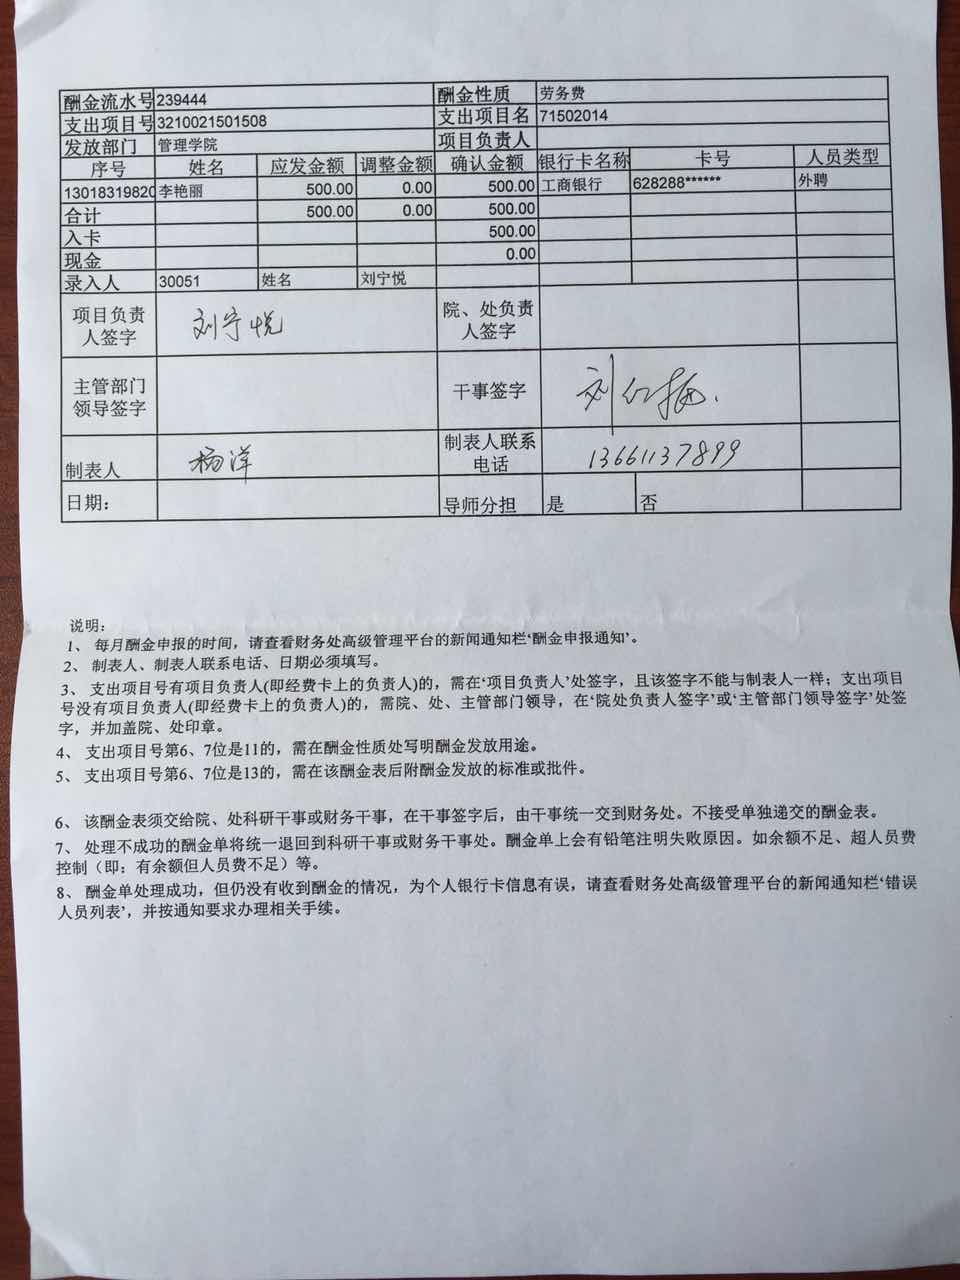 酬金流水号 239444 酬金性质 劳务费
支出项目号 3210021501508 支出项目名 71502014
发放部门 管理学院 项目负责人
序号 姓名 应发金额 调整金额 确认金额 银行卡名称 卡号 人员类型
13018319820 李艳丽 500.00 0.00 500.00 工商银行 628288****** 外聘
合计 500.00 0.00 500.00
入卡 500.00
现金 0.00
录入人 30051 姓名 刘宁悦
项目负责 院、处负责
人签字 刘宁悦 人签字
主管部门
领导签字 干事签字 刘红梅.
制表人联系
制表人 杨洋 电话 13661137899
日期: 导师分担 是 否
说明:
1、 每月酬金申报的时间，请查看财务处高级管理平台的新闻通知栏‘酬金申报通知’。
2、 制表人、制表人联系电话、日期必须填写。
3、 支出项目号有项目负责人(即经费卡上的负责人)的，需在‘项目负责人’处签字，且该签字不能与制表人一样；支出项目
号没有项目负责人(即经费卡上的负责人)的，需院、处、主管部门领导，在‘院处负责人签字’或‘主管部门领导签字’处签
字，并加盖院、处印章。
4、 支出项目号第6、7位是11的，需在酬金性质处写明酬金发放用途。
5、 支出项目号第6、7位是13的，需在该酬金表后附酬金发放的标准或批件。
6、 该酬金表须交给院、处科研干事或财务干事，在干事签字后，由干事统一交到财务处。不接受单独递交的酬金表。
7、 处理不成功的酬金单将统一退回到科研干事或财务干事处。酬金单上会有铅笔注明失败原因。如余额不足、超人员费
控制（即：有余额但人员费不足）等。
8、 酬金单处理成功，但仍没有收到酬金的情况，为个人银行卡信息有误，请查看财务处高级管理平台的新闻通知栏‘错误
人员列表’，并按通知要求办理相关手续。